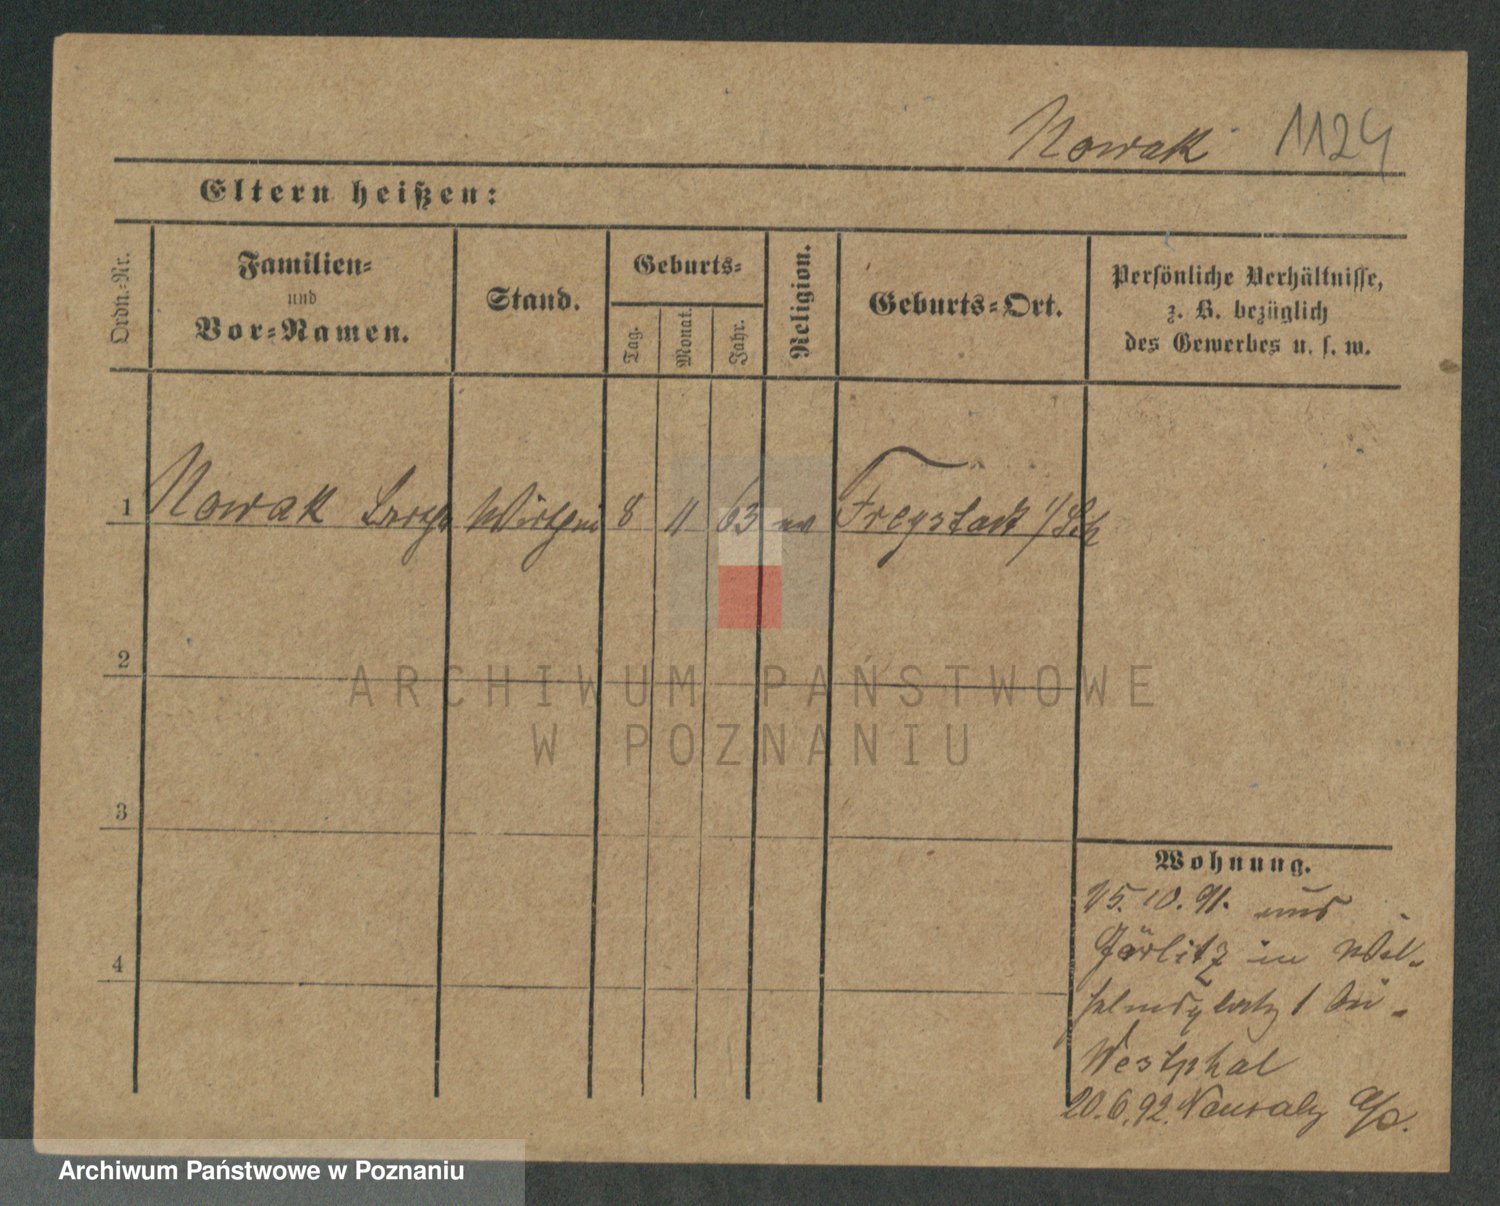 Nowak 1124
Eltern heißen:
Ordn.-Nr.
Familien-
und
Vor-Namen.
Stand.
Geburts-
Tag.
Monat.
Jahr.
Religion.
Geburts-Ort.
Persönliche Verhältnisse,
z. B. bezüglich
des Gewerbes u. s. w.
1 Nowak 8 11 63 Freystadt
2
3
4
ARCHIWUM PAŃSTWOWE
W POZNANIU
Wohnung.
15.10.91. aus
Görlitz in Wil-
helmsplatz 1 bei
Westphal
20.6.92.
Archiwum Państwowe w Poznaniu